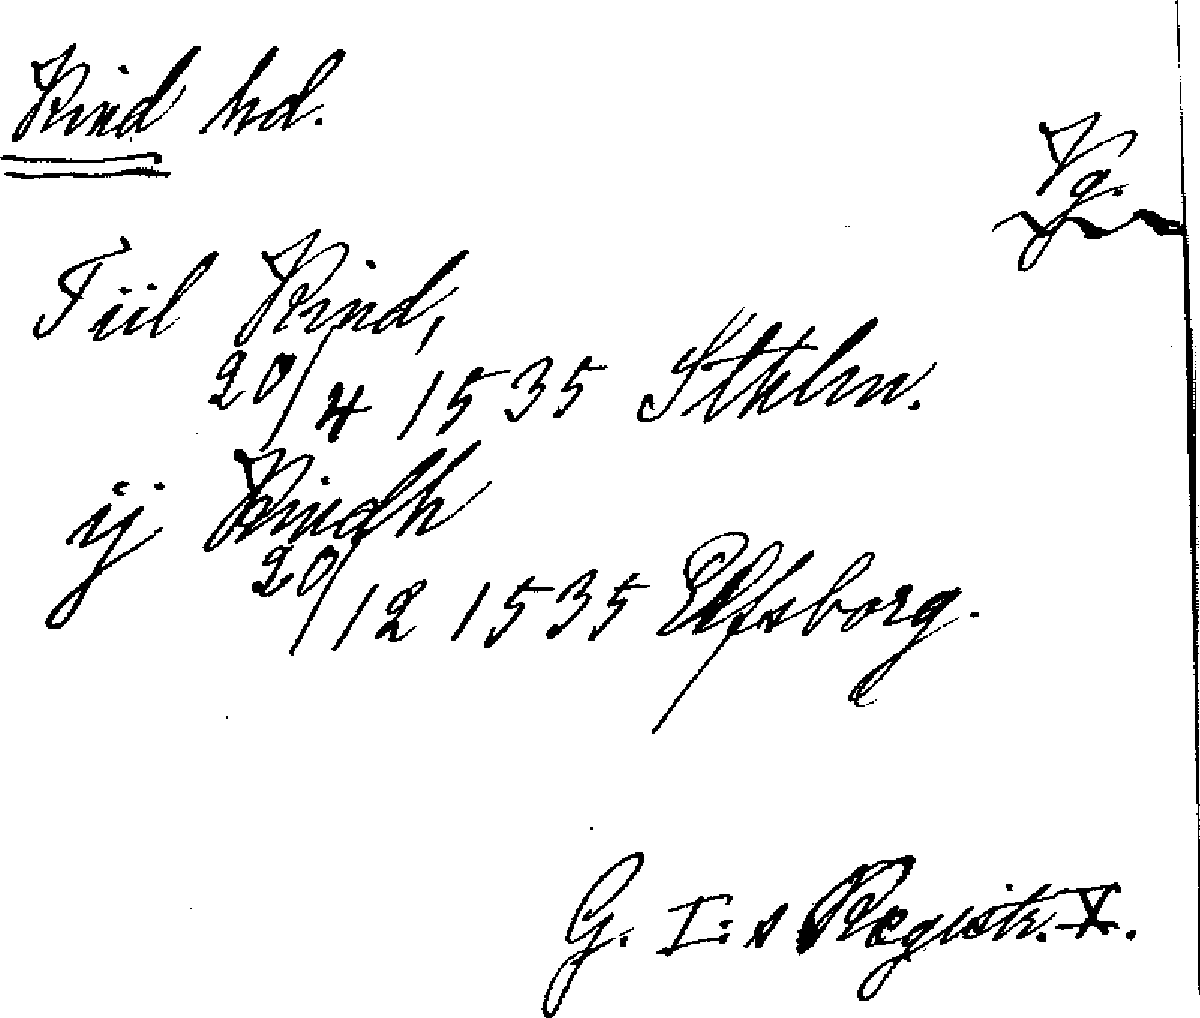 Kind hd.
Vg.
Tiil Kind,
20/4 1535 Sthlm.
ij Kindh
20/12 1535 Elfsborg.
G. I:s Registr. X.